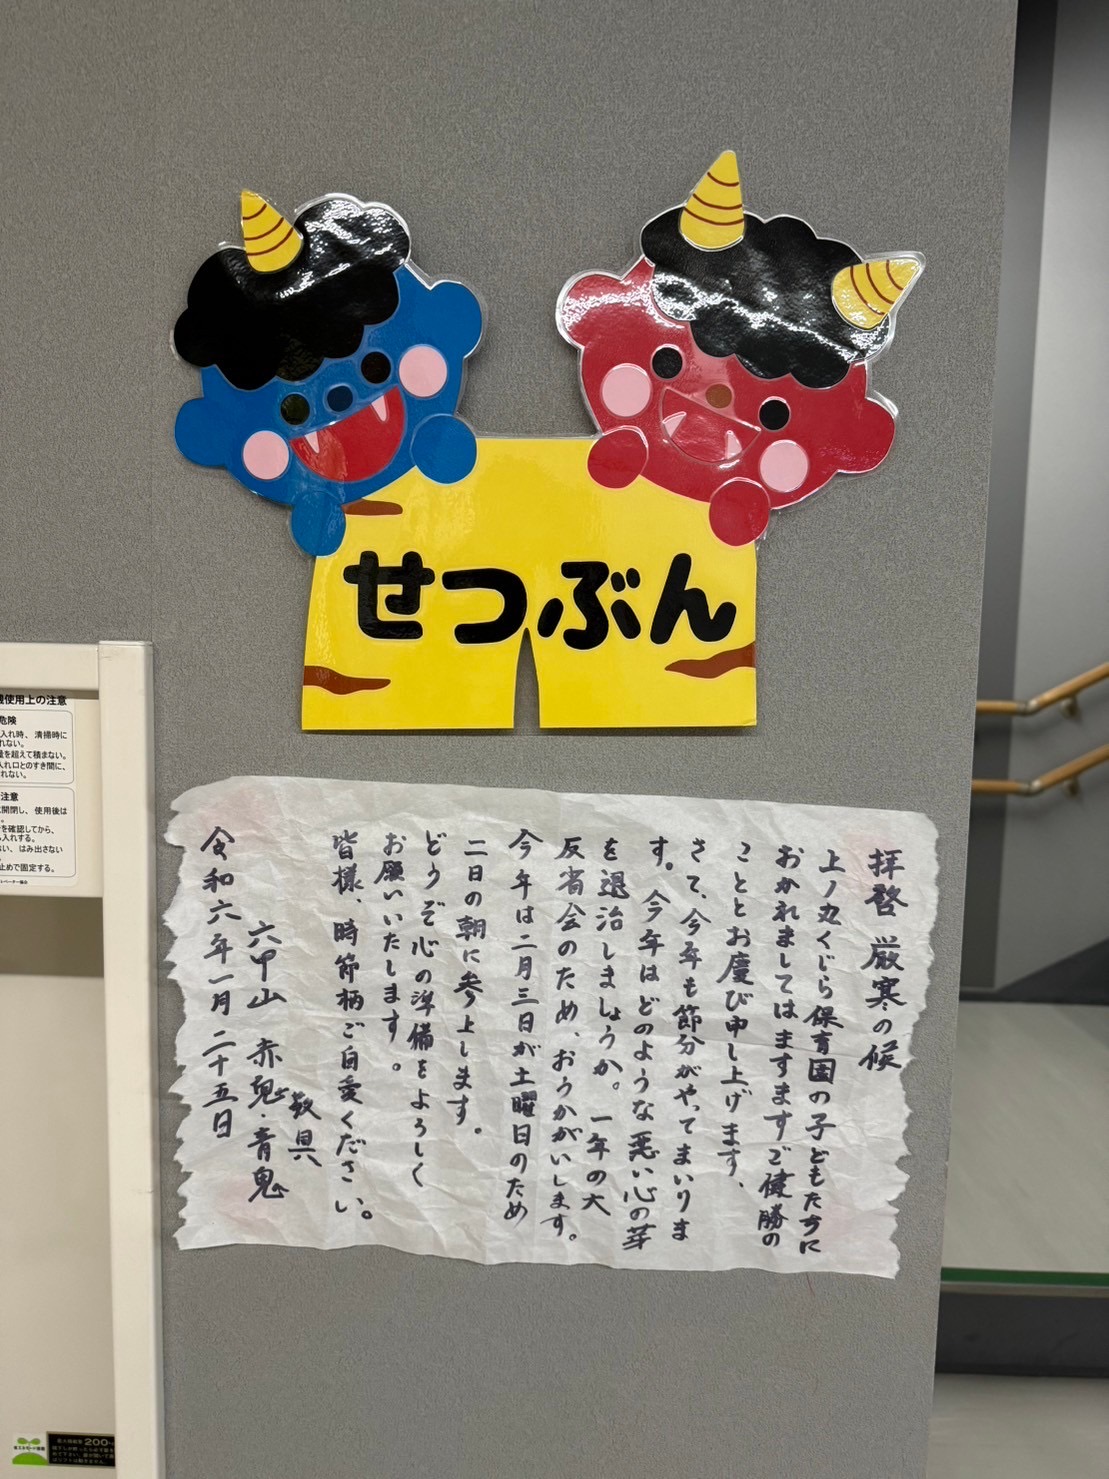 せつぶん
拝啓 厳寒の候
上ノ丸くじら保育園の子どもたちに
おかれましてはますますご健勝の
こととお慶び申し上げます、
さて、今年も節分がやってまいりま
す。今年はどのような悪い心の芽
を退治しましょうか。一年の大
反省会のため、おうかがいします。
今年は二月三日が土曜日のため
二日の朝に参上します。
どうぞ心の準備をよろしく
お願いいたします。
皆様、時節柄ご自愛ください。
敬具
六甲山 赤鬼・青鬼
令和六年一月二十五日
使用上の注意
危険
入れ時、清掃時に
れない。
量を超えて積まない。
入れ口とのすき間に、
れない。
注意
開閉し、使用後は
を確認してから、
入れする。
ない、はみ出さない
止めで固定する。
200